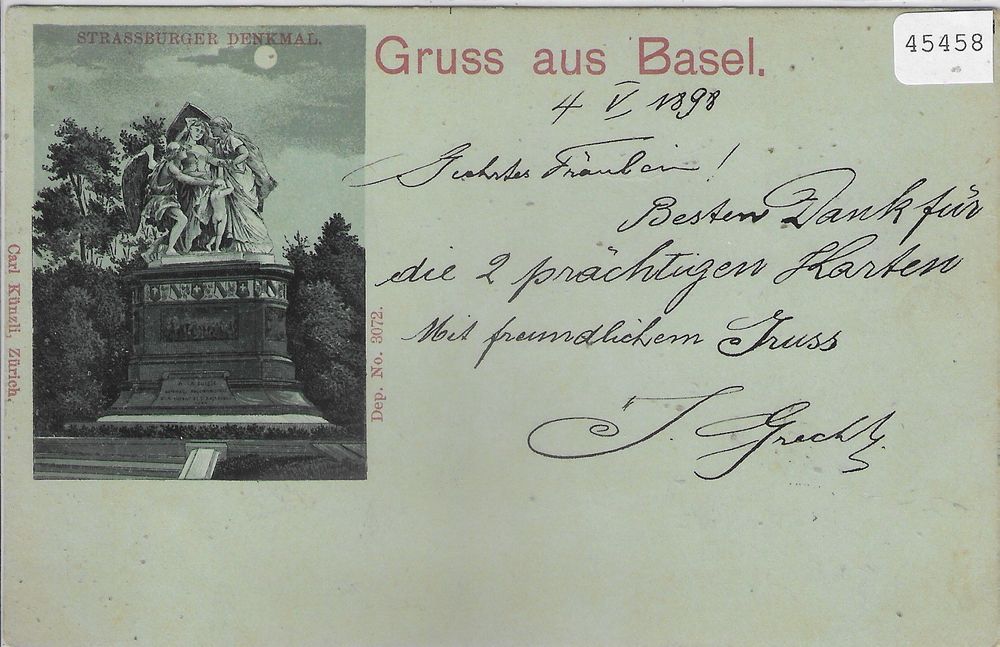 STRASSBURGER DENKMAL.
Gruss aus Basel.
45458
4 V. 1898
Geehrtes Fräulein!
Besten Dank für
die 2 prächtigen Karten
Mit freundlichem Gruss
J. Grecht
Carl Künzli, Zürich.
Dep. No. 3072.